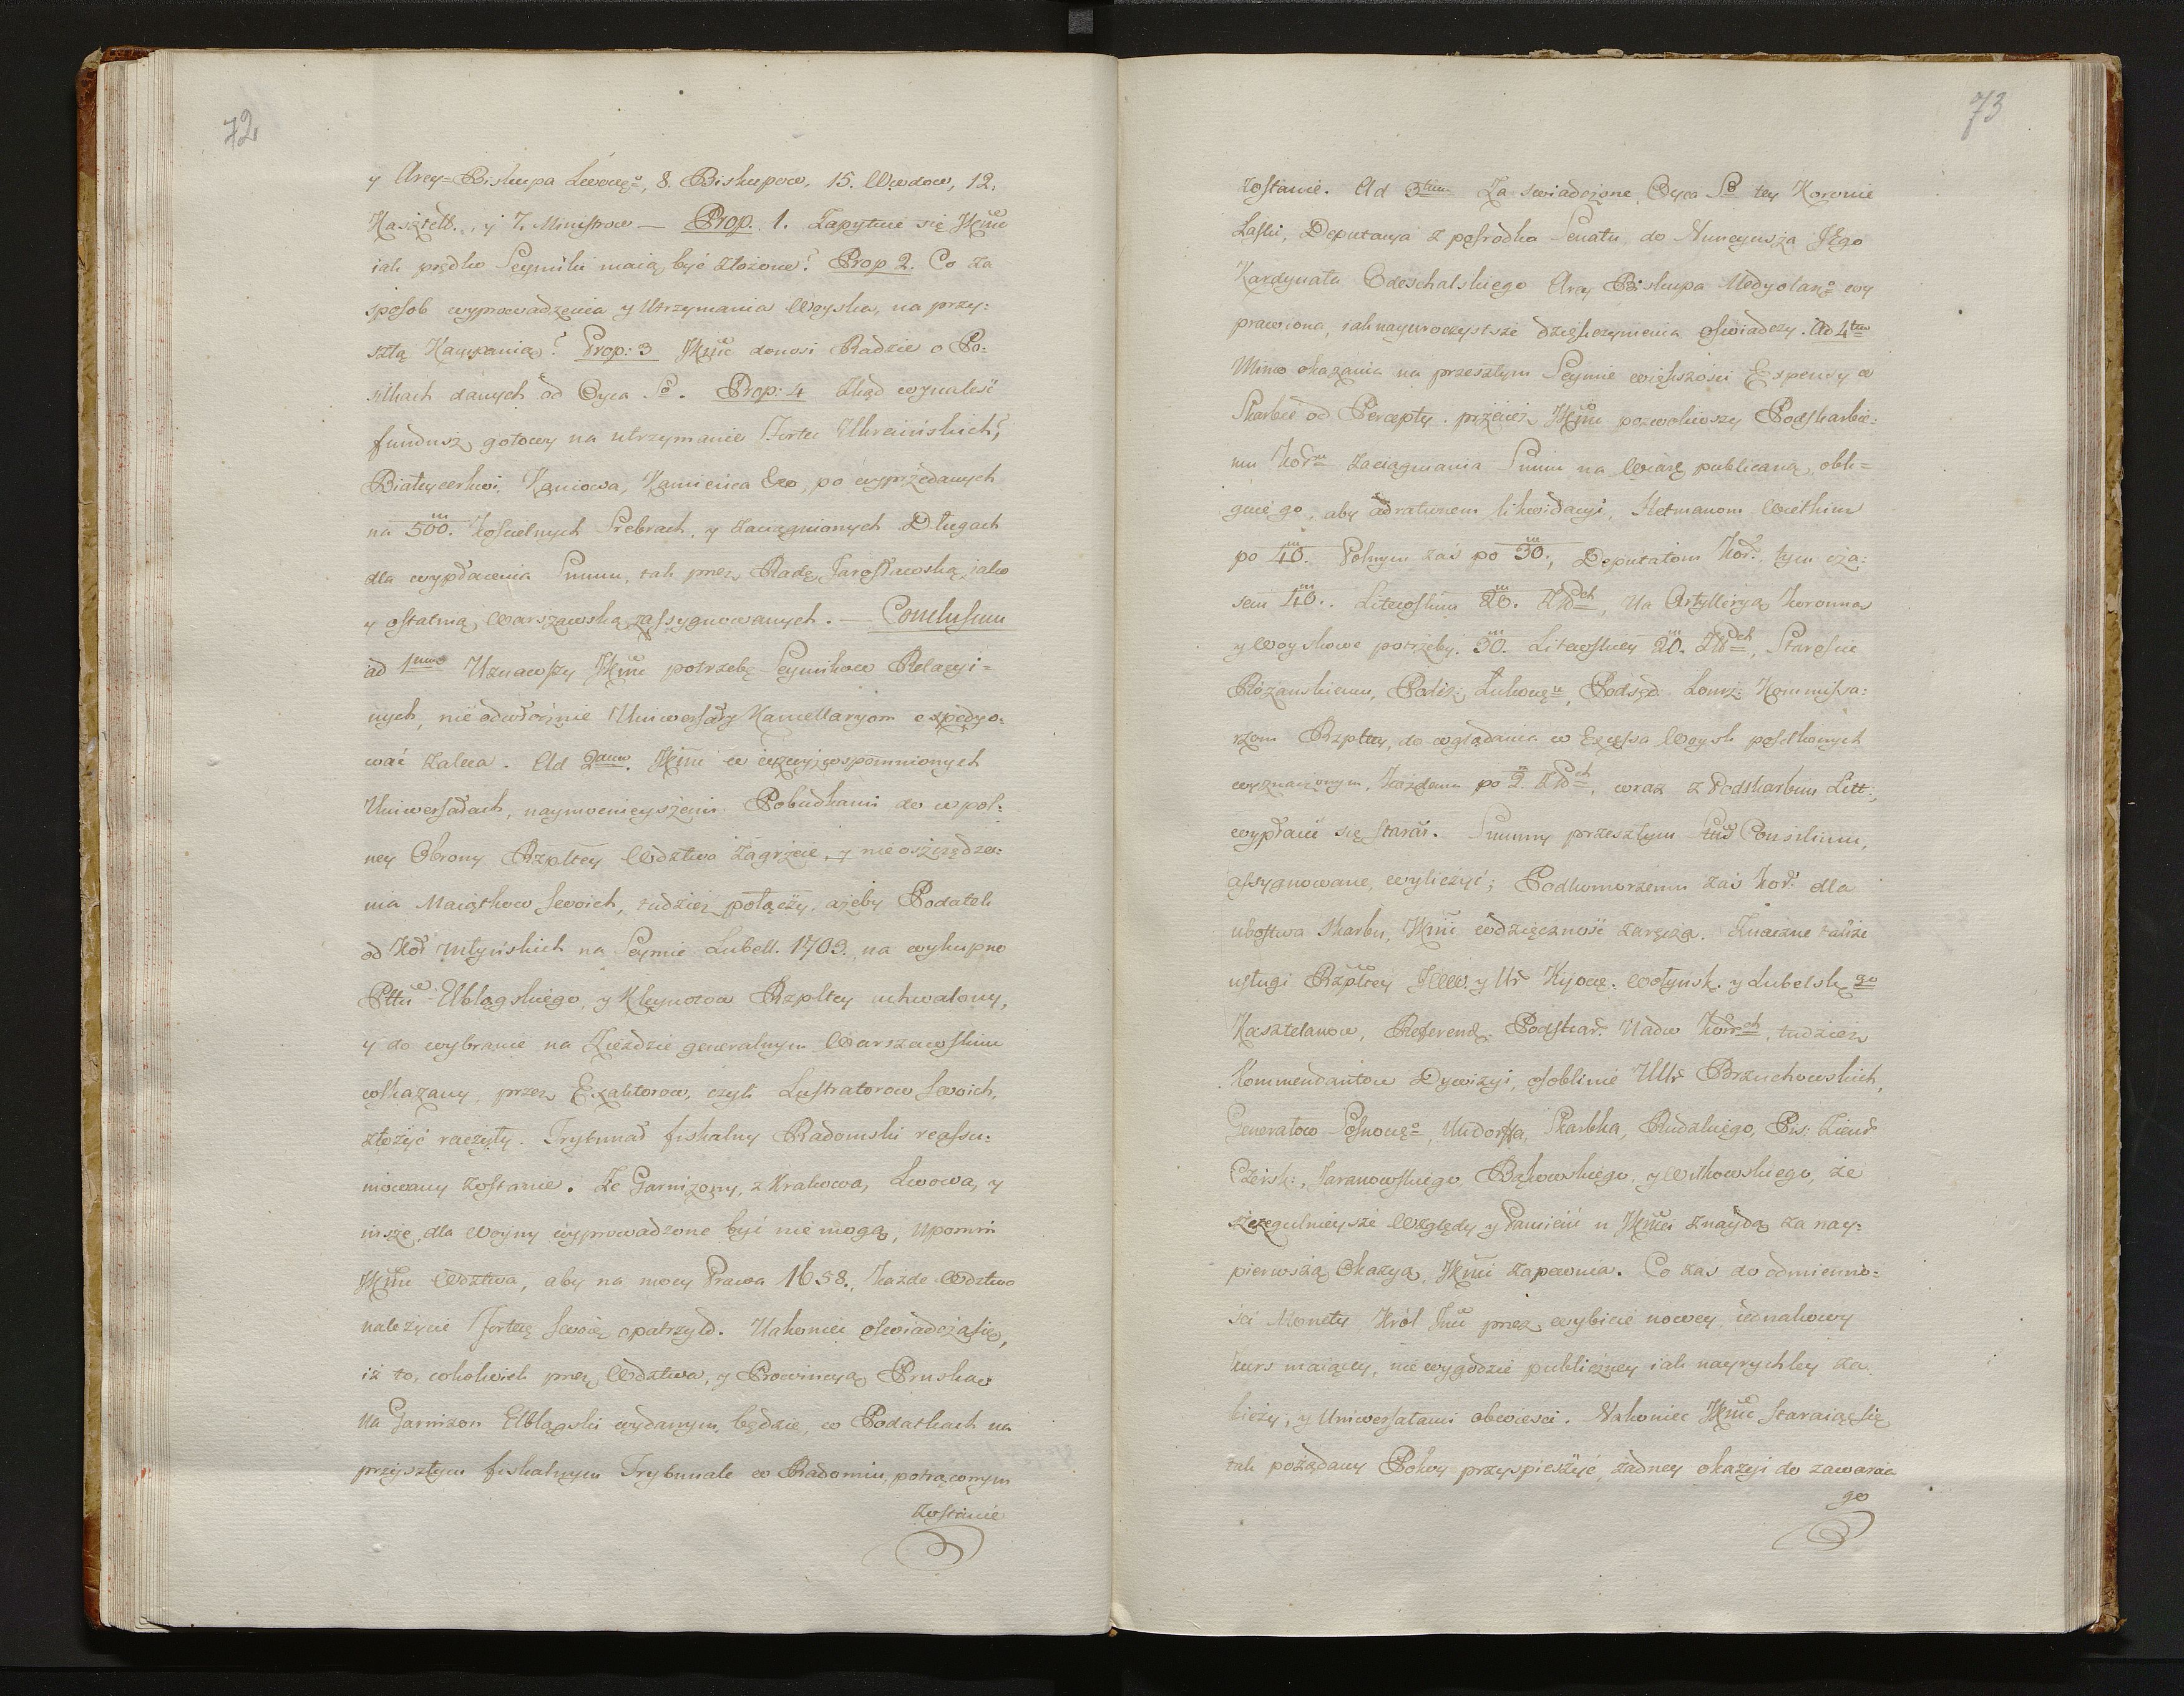 72
y Arcy=Biskupa Lwowgo, 8. Biskupow, 15. Wdow, 12.
Kasztell., y 7. Ministrow — Prop. 1. Zapytuie się JKmc
iak prędko Seymiki maią być złożone? Prop 2. Co za
sposob wyprowadzenia y Utrzymania Woyska, na przy:
szłą Kampanią? Prop: 3 JKmć donosi Radzie o Po:
siłkach danych od Oyca So. Prop: 4 Zkąd wynaleść
fundusz gotowy na utrzymanie Fortec Ukraińskich,
Białeycerkwi, Kaniowa, Kamieńca &co, po wyprzedanych
na 500.m Kościelnych Srebrach, y zaciągnionych Długach
dla wypłacenia Summ, tak przez Radę Jarosławską, jako
y ostatnią Warszawską zassygnowanych. — Conclusum
ad 1mum Uznawszy JKmć potrzebę Seymikow Relacyi=
nych, nieodwłocznie Uniwersały Kancellaryom expedyo:
wać zaleca. Ad 2dum. JKmć w wyżey wspomnionych
Uniwersałach, naymocnieyszemi Pobudkami do wpol:
ney Obrony Rzpltey Wdztwa zagrzeie, y nieoszczędza:
nia Maiątkow swoich, tudzież połączy, ażeby Podatek
od Koł młyńskich na Seymie Lubell. 1703., na wykupno
Pttu Elblągskiego, y Kleynotow Rzpltey uchwalony,
y do wybrania na Zieździe generalnym Warszawskim
wskazany, przez Exaktorow, czyli Lustratorow swoich,
złożyć raczyły. Trybunał fiskalny Radomski reassu:
mowany zostanie. Że Garnizony, z Krakowa, Lwowa, y
insze, dla Woyny wyprowadzone być nie mogą, upomni
JKmć Wdztwa, aby na mocy Prawa 1658., każde Wdztwo
należycie Fortecę swoię opatrzyło. Nakoniec oświadcza się,
iż to, cokolwiek przez Wdztwa, y Prowincyą Pruską
na Garnizon Elblągski wydanym będzie, w Podatkach na
przyszłym fiskalnym Trybunale w Radomiu, potrąconym
zostanie
73
zostanie. Ad 3tium Za swiadczone Oyca So tey Koronie
Łaski, Deputacya z pośrodka Senatu, do Nuncyusza Jego
Kardynała Odeschalskiego Arcy Biskupa Medyolango wy
prawiona, iaknayuroczystsze dziękczynienia oświadczy. Ad 4tum
Mimo okazania na przeszłym Seymie większości Expensy w
Skarbie od Percepty, przecież JKmć pozwoliwszy Podskarbie:
mu Koru zaciągnienia Summ na Wiarę publiczną, obli=
guie go, aby adratunem likwidacyi, Hetmanom Wielkim
po 40.m Polnym zaś po 30.m, Deputatom Kor., tym cza:
sem 40.m. Litewskim 20.m Złłch, Na Artylleryą Koronną
y Woyskowe potrzeby. 30.m Litewskiey 20.m Złłch, Staroście
Różańskiemu, Podcz. Łukowu, Podsęd. Łomż. Kommissa:
rzom Rzpltey, do wglądania w Excessa Woysk posiłkowych
wyznaczonym, każdemu po 2.m Złłch, wraz z Podskarbim Litt:,
wypłacić się starał. Summy przeszłym Stus Consilium,
assygnowane, wyliczyć; Podkomorzemu zaś Kor. dla
ubostwa Skarbu, JKmć wdzięczność zaręcza. Znaczne także
usługi Rzpltey JWW. y Ur Kijow. Wołyńsk. y Lubelskgo
Kasztelanow, Referend. Podskar. Nadw Korrch, tudzież
Kommendantow Dywizyi, osobliwie UUr Brzuchowskich,
Generałow Posnowgo, Skarbka, Rudzkiego, Pis: Ziem
Czersk:, Taranowskiego Bąkowskiego, y Witkowskiego, że
szczegulnieysze Względy y Pamięć u JKmci znaydą za nay:
pierwszą Okazyą, JKmć zapewnia. Co zaś do odmienno:
ści Monety Król Jmć przez wybicie nowey iednakowy
kurs maiącey, niewygodzie publiczney iak nayrychley za
bieży, y Uniwersałami obwieści. Nakoniec JKmć staraiąc się
tak pożądany Pokoy przyspieszyć, żadney okazyi do zawarcia
go